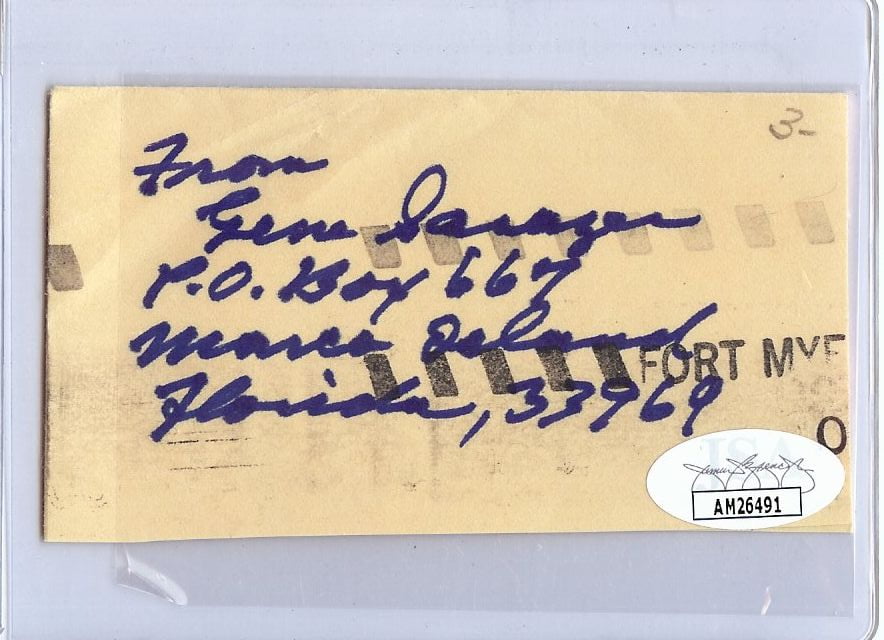 3-
From
Gene Sarazen
P.O. Box 667
Marco Island
Florida, 33969
FORT MYE
O
JSA
AM26491